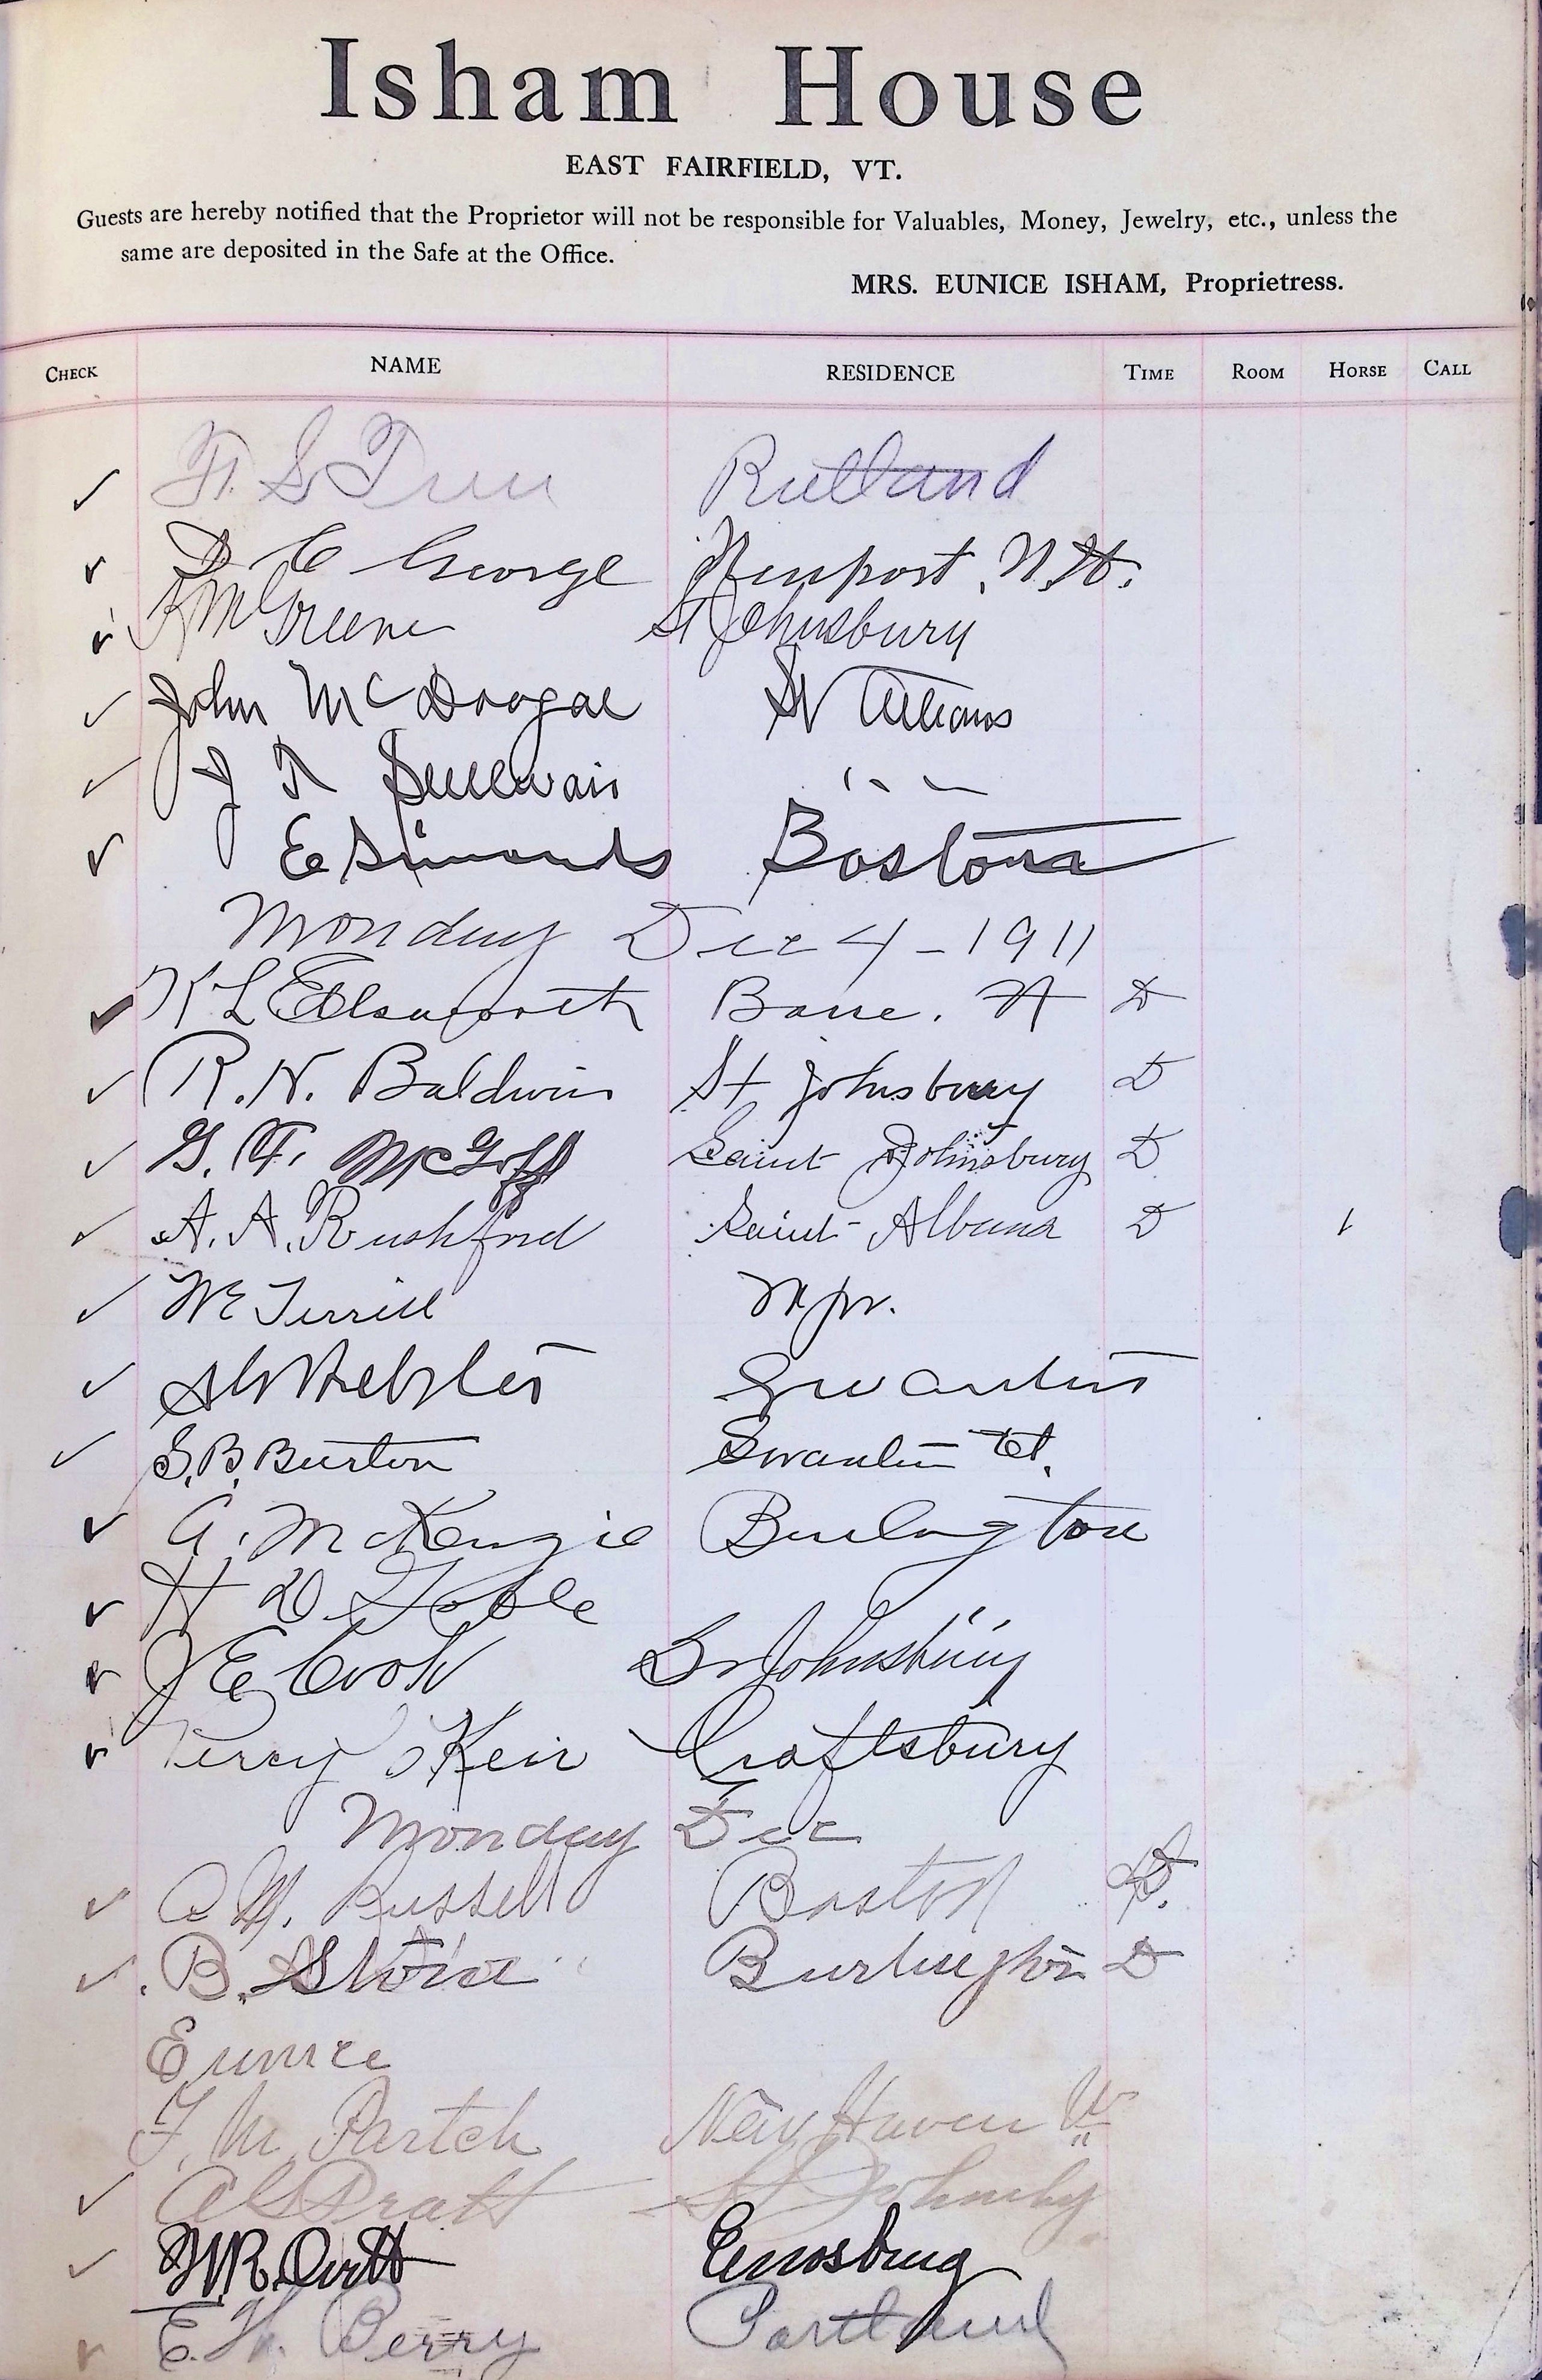 Isham House
EAST FAIRFIELD, VT.
Guests are hereby notified that the Proprietor will not be responsible for Valuables, Money, Jewelry, etc., unless the
same are deposited in the Safe at the Office.
MRS. EUNICE ISHAM, Proprietress.
CHECK NAME RESIDENCE TIME ROOM HORSE CALL
✓ Rutland
✓ D C George Newport, N.H.
✓ St Johnsbury
✓ John McDougal St Albans
✓ J Sullivan " "
✓ E Simonds Boston
Monday Dec 4 - 1911
✓ K L Ellsworth Barre. Vt D
✓ R. N. Baldwin St Johnsbury D
✓ G. F. McGoff Saint Johnsbury D
✓ A. A. Rushford Saint Albans D
✓ WE Terrill
✓ Webster Swanton
✓ S. B. Burton Swanton Vt.
✓ A. McKenzie Burlington
✓ H D Goble
✓ J E Cook St Johnsbury
✓ Percy Keir Craftsbury
Monday Dec
✓ Russell Boston D.
✓ B. Burlington D
Eunice
F. M. Partch New Haven Vt
✓ Pratt St Johnsby
✓ W.R. Ovitt Enosburg
✓ E. H. Berry Portland